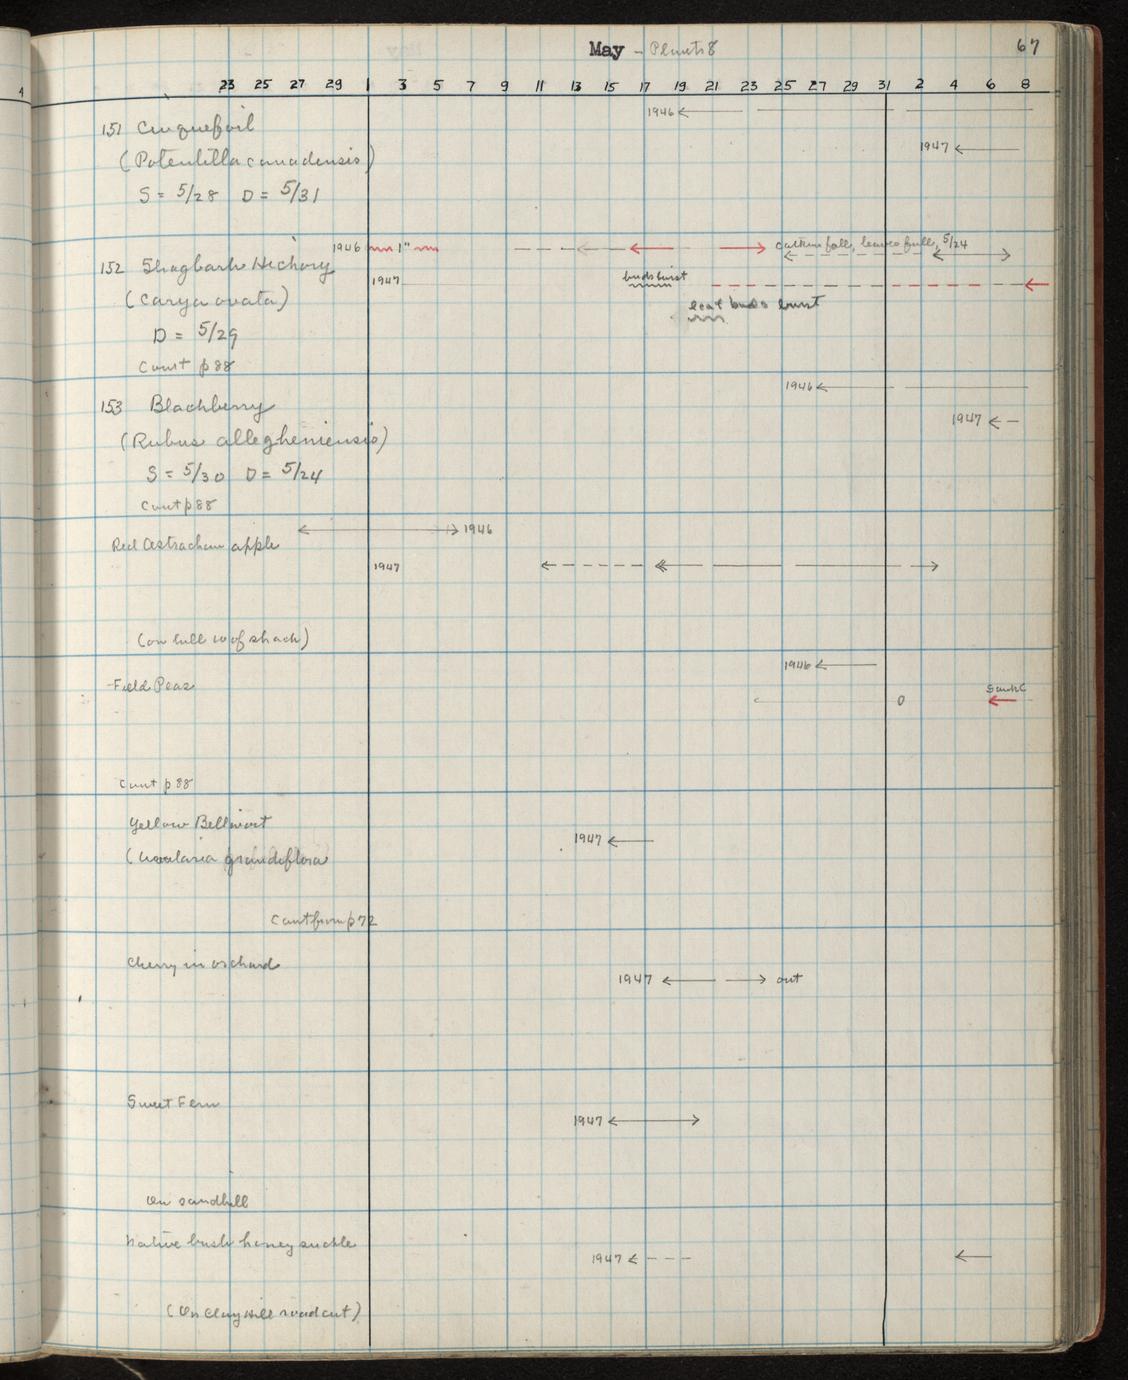 May - Plants 8
67
4
23 25 27 29 1 3 5 7 9 11 13 15 17 19 21 23 25 27 29 31 2 4 6 8
1946
151 Cinquefoil
1947
(Potentilla canadensis)
S = 5/28 D = 5/31
1946 1" catkins fall, leaves full, 5/24
152 Shagbark Hickory
1947 buds burst
(Carya ovata)
leaf buds burst
D = 5/29
Cont p 88
1946
153 Blackberry
1947
(Rubus allegheniensis)
S = 5/30 D = 5/24
Cont p 88
1946
Red Astrachan apple
1947
(on hill w of shack)
1946
Field Peas
0
Cont p 88
Yellow Bellwort
1947
(Uvularia grandiflora
Cont from p 72
Cherry in orchard
1947 out
Sweet Fern
1947
On sandhill
Native bush honeysuckle
1947
(On Clay Hill road cut)